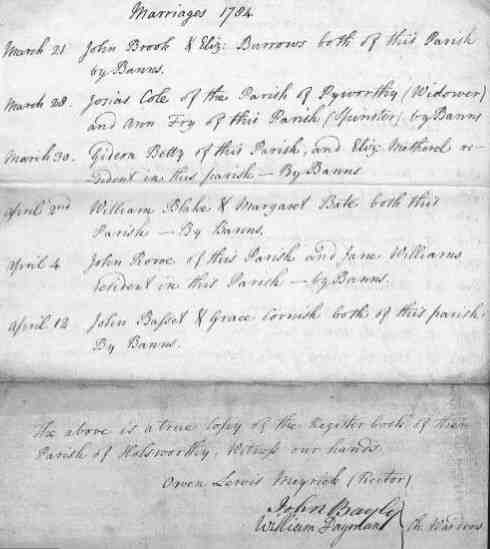 Marriages 1784
March 21 John Brook & Eliz: Barrows both of this Parish
by Banns.
March 28. Josias Cole of the Parish of Pyworthy (Widower)
and Ann Fry of this Parish (Spinster) by Banns
March 30. Gideon Betty of this Parish, and Eliz: Metherel re-
sident in this parish — By Banns
April 2nd William Blake & Margaret Bate both this
Parish — By Banns.
April 4 John Rowe of this Parish and Jane Williams
resident in this Parish — by Banns.
April 12 John Basset & Grace Cornish both of this parish.
By Banns.
The above is a true Copy of the Register book of the
Parish of Holsworthy, Witness our hands.
Owen Lewis Meyrick (Rector)
John Bayly
William Dayman Ch. Wardens